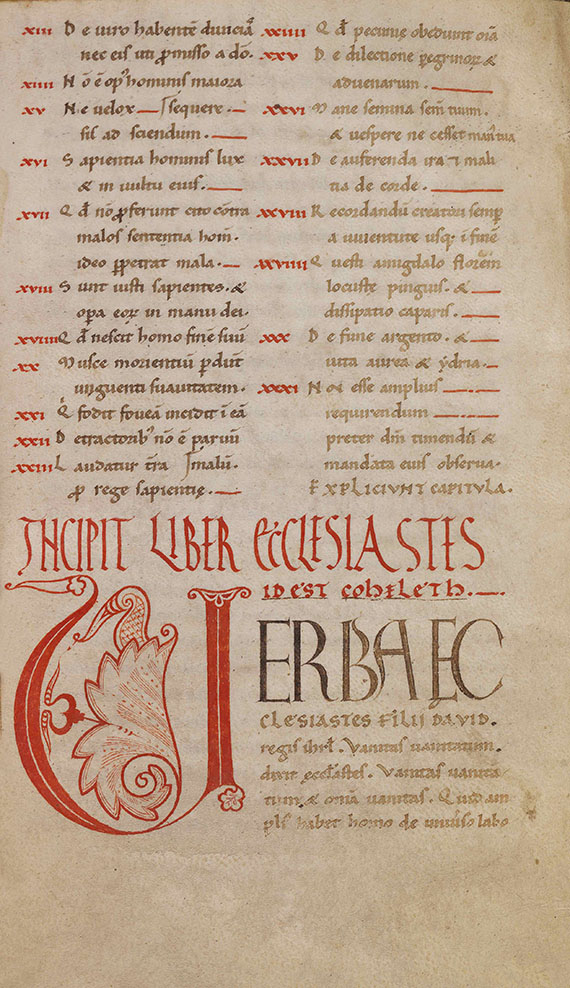 xiii De uiro habente diuicia
nec eis uti p̄misso a do.
xiiii Nō ē op' hominis maiora
xv Ne uelox sequere
fili ad sciendum.
xvi Sapientia hominis lux
& in uultu eius.
xvii Qđ nō p̄ferunt cito contra
malos sententia hom.
ideo ꝑpetrat mala.
xviii Sunt iusti sapientes. &
opa eoꝝ in manu dei.
xviiii Qđ nescit homo finē suū
xx Musce morientiū ꝑdūt
unguenti suauitatem.
xxi Q̇ fodit foueā incidit ī eā
xxii Detractorib' nō ē paruū
xxiii Laudatur tr̄a malū.
ꝓ rege sapientię.
xxiiii Qđ pecunię obediunt oīa
xxv De dilectione peregrinoꝝ &
aduenarum.
xxvi Mane semina sem̄ tuum.
& uespere ne cesset man' tua
xxvii De auferenda ira & mali
tia de corde.
xxviii Recordandū creatori semꝑ
a iuuentute usq; ī finē
xxviiii Questi amigdalo florem
locustę pinguis. &
dissipatio caparis.
xxx De fune argenteo. &
uita aurea & ydria.
xxxi Non esse amplius
requirendum
preter dm̄ timendū &
mandata eius obserua.
EXPLICIUNT CAPITULA.
INCIPIT LIBER ECCLESIASTES
IDEST COHELETH.
UERBA EC
CLESIASTES FILII DAVID.
regis ihrl̄. Vanitas uanitatum.
dixit eccl̄astes. Vanitas uanita
tum & omīa uanitas. Quid am
pl̄s habet homo de uniuerso labo